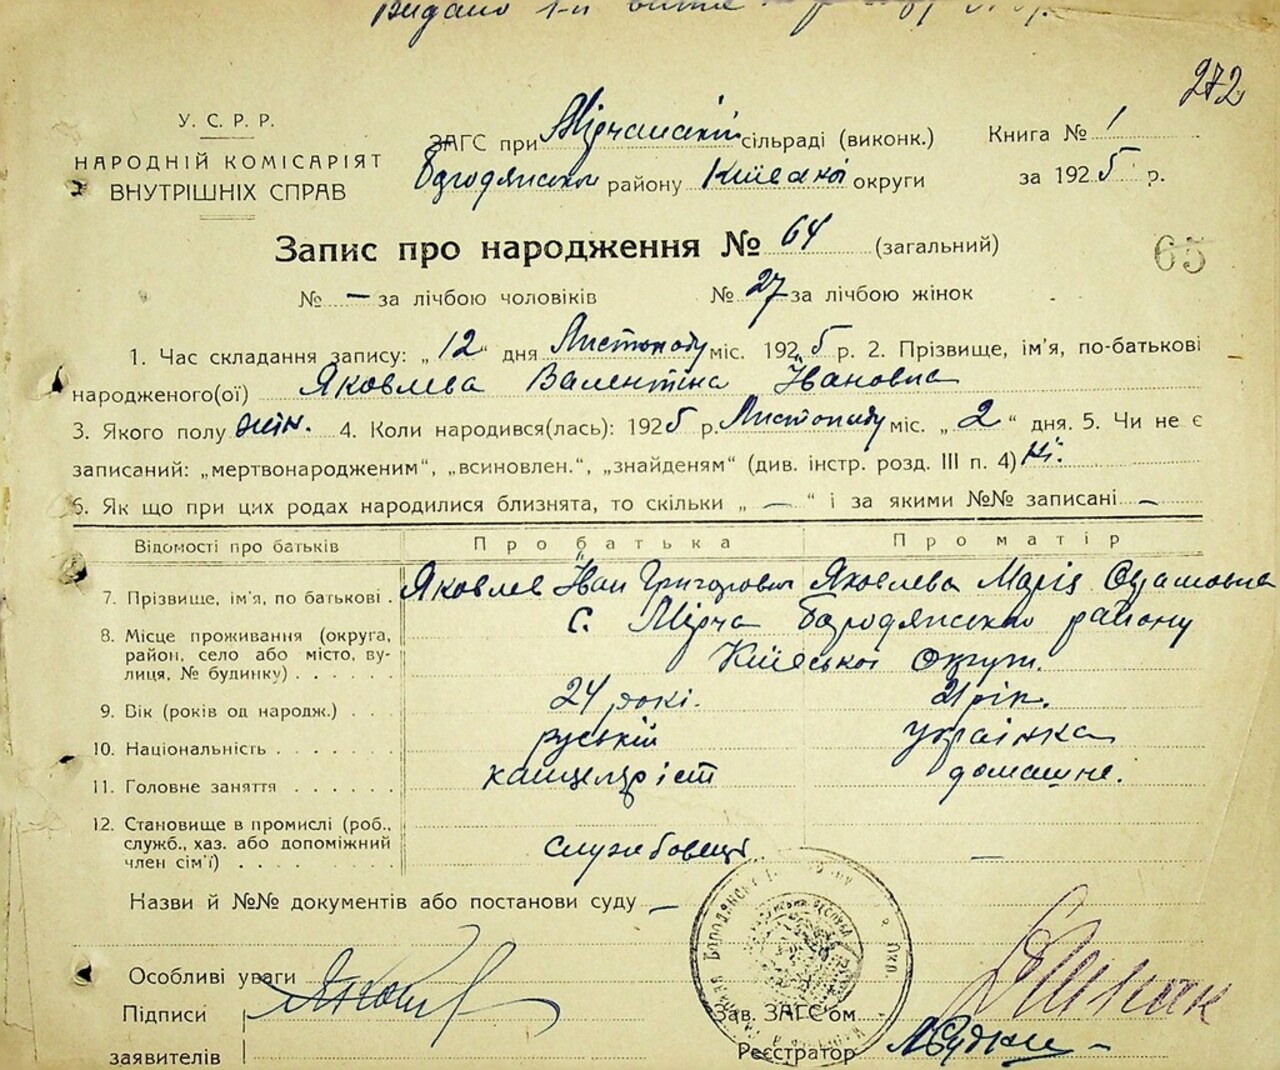 Видано 1-й
272
У. С. Р. Р.
НАРОДНІЙ КОМІСАРІЯТ
ВНУТРІШНІХ СПРАВ
ЗАГС при Мірчанській сільраді (виконк.)
Бородянського району Київської округи
Книга № 1
за 1925 р.
Запис про народження № 64 (загальний)
65
№ — за лічбою чоловіків № 27 за лічбою жінок
1. Час складання запису: „12“ дня Листопаду міс. 1925 р. 2. Прізвище, ім'я, по-батькові
народженого(ої) Яковлева Валентіна Івановна
3. Якого полу жін. 4. Коли народився(лась): 1925 р. Листопаду міс. „2“ дня. 5. Чи не є
записаний: „мертвонародженим“, „всиновлен.“, „знайденям“ (див. інстр. розд. III п. 4) Ні.
6. Як що при цих родах народилися близнята, то скільки „ — “ і за якими №№ записані —
Відомості про батьків Про батька Про матір
7. Прізвище, ім'я, по батькові . Яковлев Іван Григорович Яковлева Марія
8. Місце проживання (округа, район, село або місто, вулиця, № будинку) . . . . . . С. Мірча Бородянського району
Київської Округи.
9. Вік (років од народж.) . . . 24 рокі. 21 рік.
10. Національність . . . . . . . руській українка
11. Головне заняття . . . . . . канцеляріст домашнє.
12. Становище в промислі (роб., служб., хаз. або допоміжний член сім'ї) . . . . Службовець —
Назви й №№ документів або постанови суду —
Особливі уваги
Підписи
заявителів
Зав. ЗАГС'ом
Реєстратор